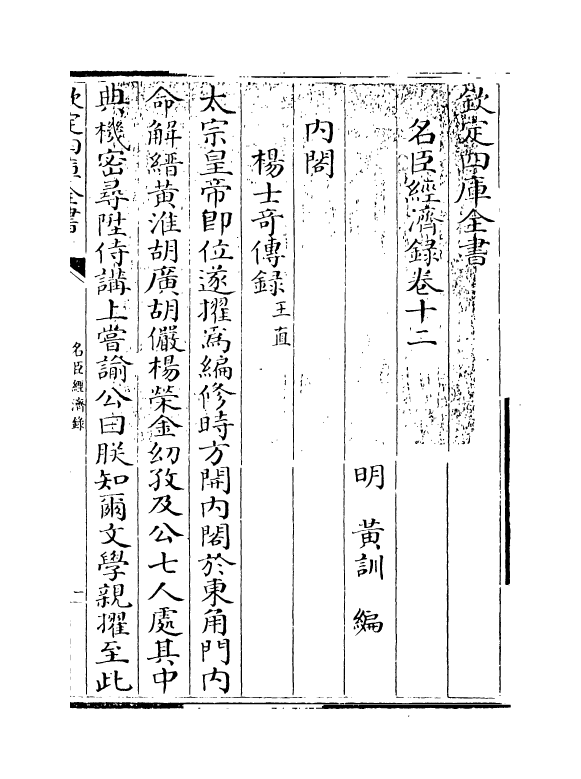 欽定四庫全書
名臣經濟錄卷十二
明 黃訓 編
內閣
楊士竒傳錄王直
太宗皇帝即位遂擢爲編修時方開内閣於東角門内
命解縉黃淮胡廣胡儼楊榮金幼孜及公七人處其中
典機密尋陞侍講上嘗諭公曰朕知爾文學親擢至此
欽定四庫全書
名臣經濟錄